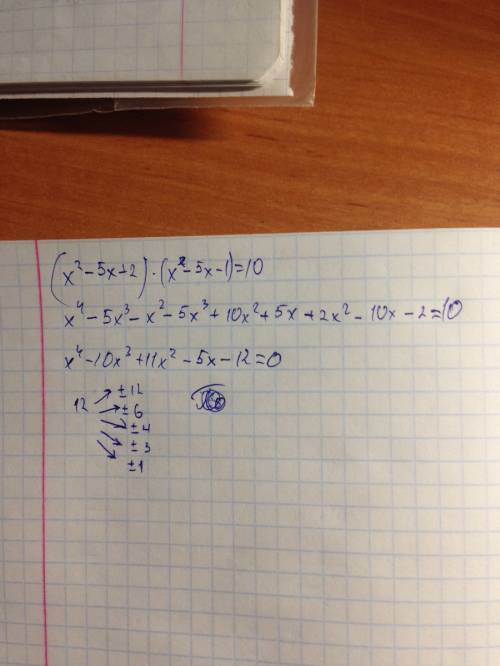 (x² - 5x + 2) · (x² - 5x - 1) = 10
x⁴ - 5x³ - x² - 5x³ + 10x² + 5x + 2x² - 10x - 2 = 10
x⁴ - 10x³ + 11x² - 5x - 12 = 0
± 12
12 ± 6
± 4
± 3
± 1